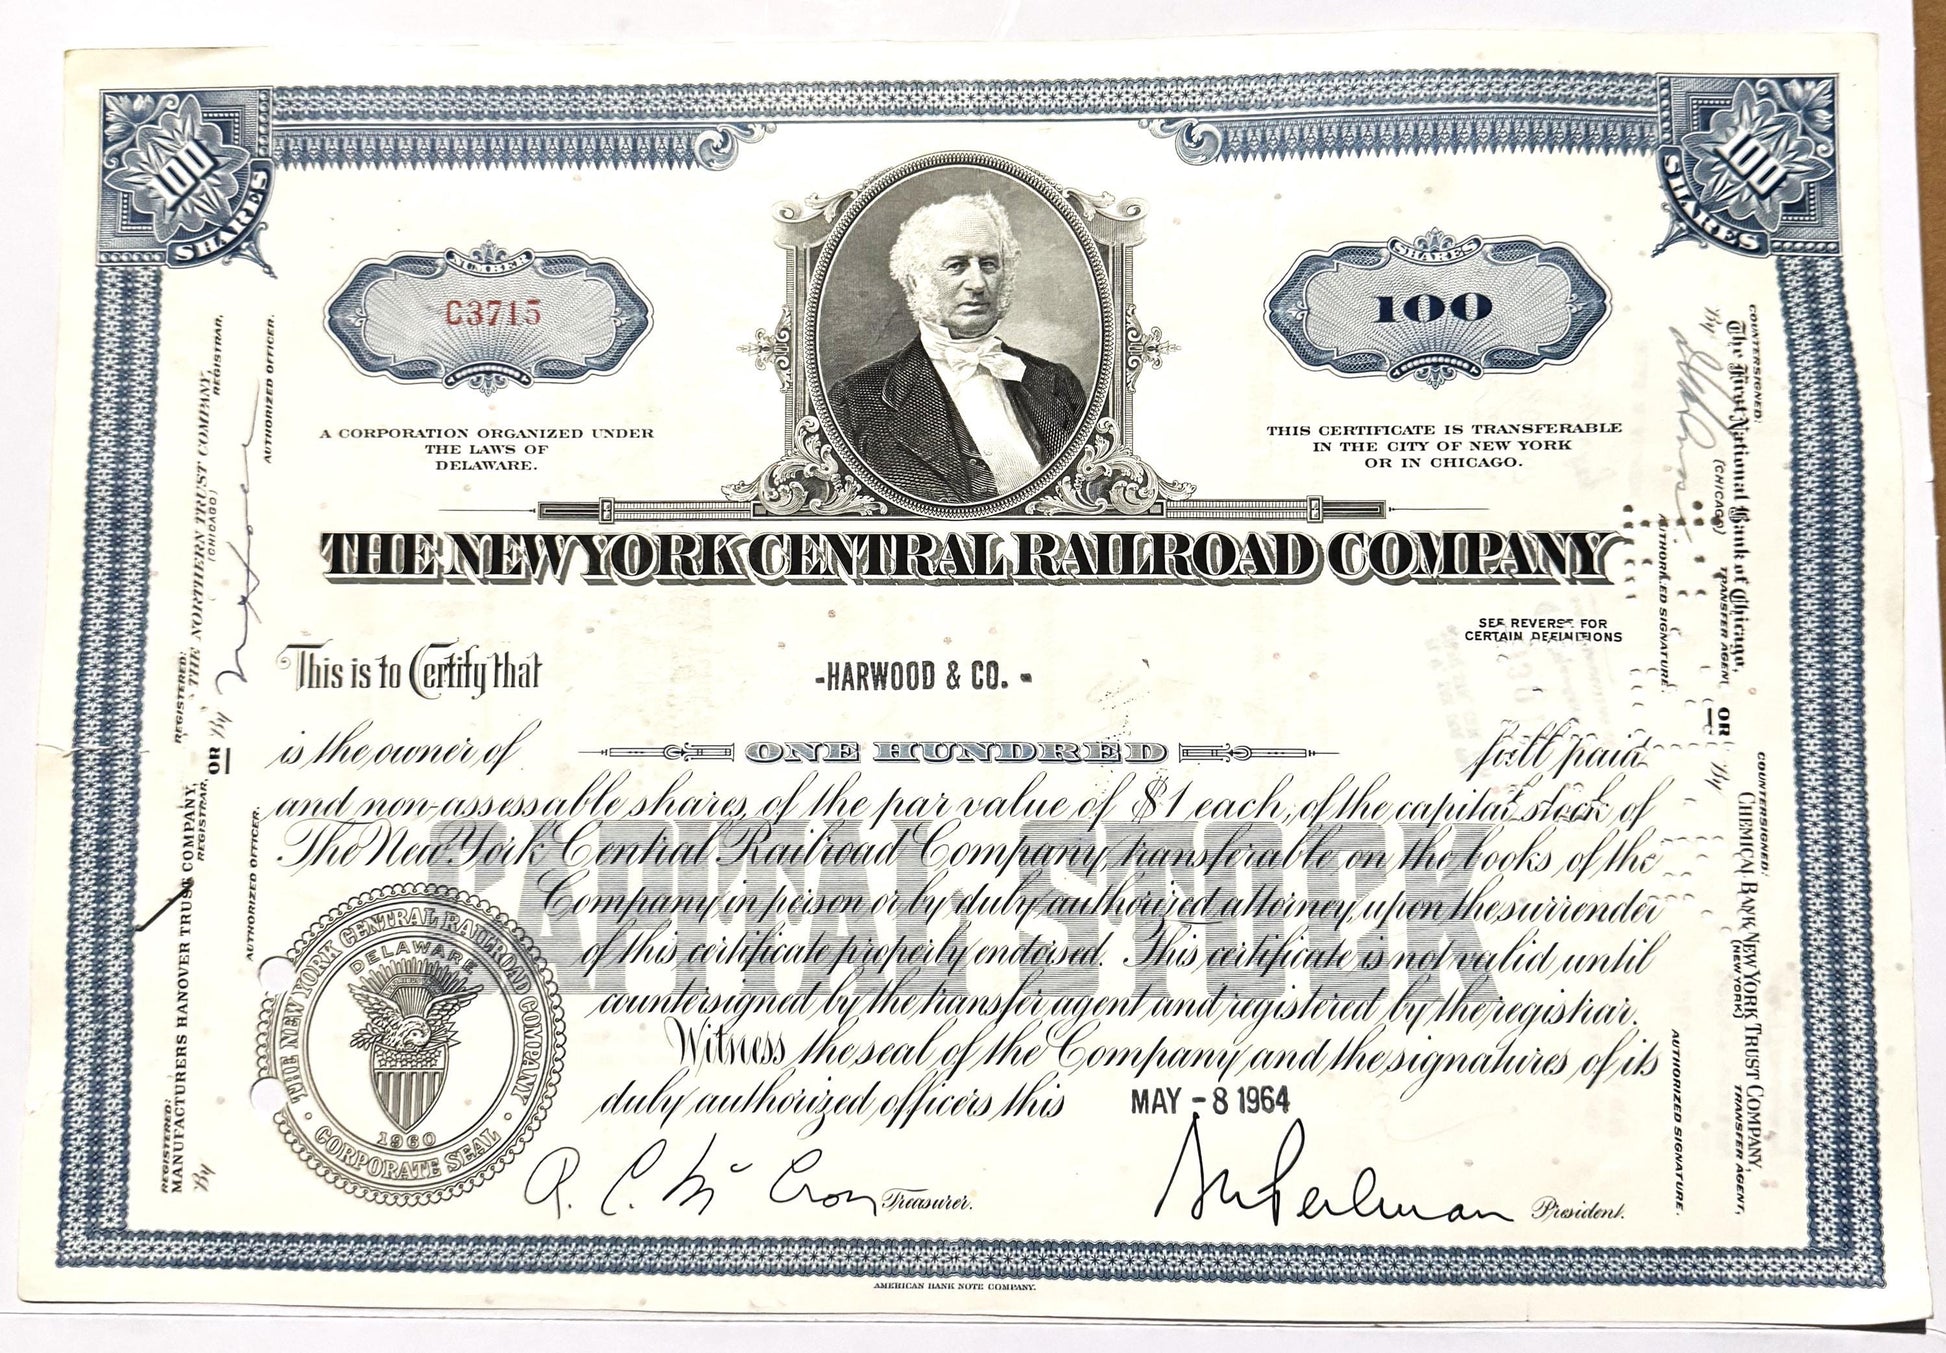 100
SHARES
100
SHARES
NUMBER
C3715
SHARES
100
A CORPORATION ORGANIZED UNDER
THE LAWS OF
DELAWARE.
THIS CERTIFICATE IS TRANSFERABLE
IN THE CITY OF NEW YORK
OR IN CHICAGO.
THE NEW YORK CENTRAL RAILROAD COMPANY
SEE REVERSE FOR
CERTAIN DEFINITIONS
This is to Certify that
-HARWOOD & CO. -
is the owner of ONE HUNDRED full paid
and non-assessable shares, of the par value of $1 each, of the capital stock of
The New York Central Railroad Company, transferable on the books of the
Company in person or by duly authorized attorney, upon the surrender
of this certificate properly endorsed. This certificate is not valid until
countersigned by the transfer agent and registered by the registrar.
Witness the seal of the Company and the signatures of its
duly authorized officers this MAY - 8 1964
CAPITAL STOCK
THE NEW YORK CENTRAL RAILROAD COMPANY
DELAWARE
1960
CORPORATE SEAL
Treasurer.
Perlman President.
AMERICAN BANK NOTE COMPANY.
REGISTERED:
THE NORTHERN TRUST COMPANY,
(CHICAGO) REGISTRAR,
By
AUTHORIZED OFFICER.
OR
REGISTERED:
MANUFACTURERS HANOVER TRUST COMPANY,
REGISTRAR,
By
AUTHORIZED OFFICER.
COUNTERSIGNED:
The First National Bank of Chicago,
(CHICAGO) TRANSFER AGENT,
By
AUTHORIZED SIGNATURE.
OR
COUNTERSIGNED:
CHEMICAL BANK NEW YORK TRUST COMPANY,
(NEW YORK) TRANSFER AGENT,
By
AUTHORIZED SIGNATURE.